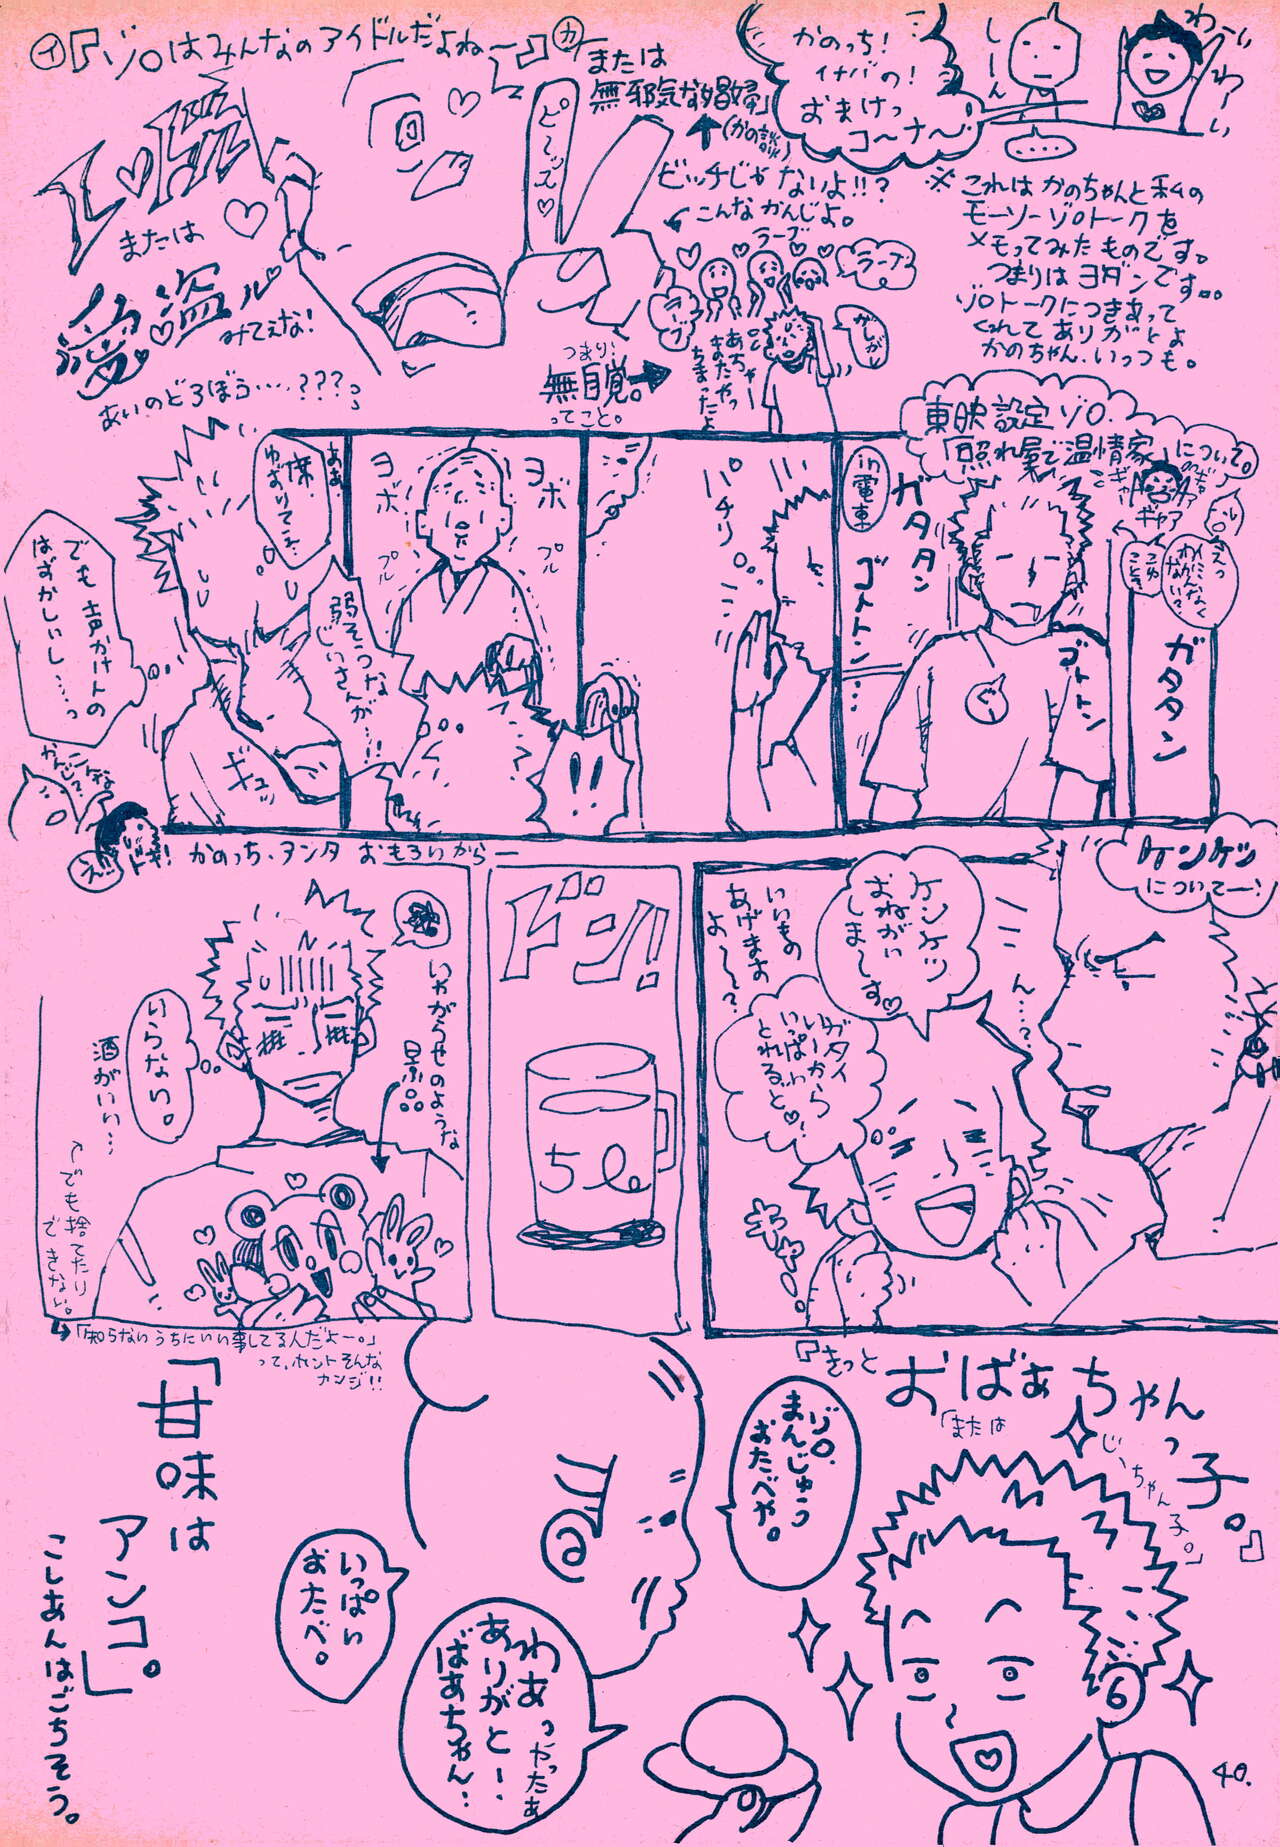 かのっち!
イナバの!
おまけっ
コ〜ナ〜!
し〜ん
わーい
わーい
※これはかのちゃんと私の
モーソーゾロトークを
メモってみたものです。
つまりはヨダンです。。
ゾロトークにつきあって
くれてありがとよ
かのちゃん、いっつも。
イ『ゾロはみんなのアイドルだよねー』
カ
または
無邪気な娼婦」
(かの談)
ピ〜ッス♡
または
愛盗ル
みてえな!
あいのどろぼう……???
ビッチじゃないよ!!?
こんなかんじよ。
ラーブ
ラーブ
ラーブ
あちゃー
またやっ
ちまったよ
つまり!
無自覚。
ってこと。
東映設定ゾロ.
「照れ屋で温情家」について。
ギャア
えっ
in電車
ガタタン
ゴトトン…
ぐぅ
ゴトトン
ガタタン
パチリ
ヨボ
ヨボ
プル
プル
弱そうな
じいさんが…!!
ああ
席.
ゆずりてぇ.
でも声かけんの
はずかしいし……っ
ギュッ
こんな
かんじ?
え!!
ドキ!
かのっち、アンタ おもろいからー
ケンケツ
についてー!
ん…?
ケンケツ
おねがい
しま〜す♡
いいもの
あげますの
よ〜?
ガタイ
いーから
いっぱい
とれるぞ♡!
キャー
ドン!!
5l
いやがらせのような
景品。
いらない。
酒がいい…
でも捨てたり
できない。
「知らないうちにいい事してる人だよー。」
って、ホントそんな
カンジ!!
『きっと
おばあちゃん
っ子。』
「または
じいちゃん子。」
ゾロ.
まんじゅう
おたべや。
いっぱい
おたべ。
わあっやったぁ
ありがとー!
ばあちゃん!
「甘味は
アンコ。」
こしあんはごちそう。
40.